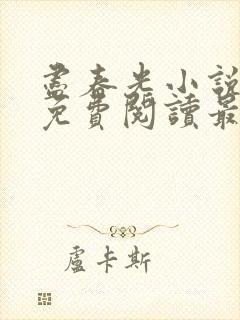 盡春光小說
免費閱讀最
盧卡斯